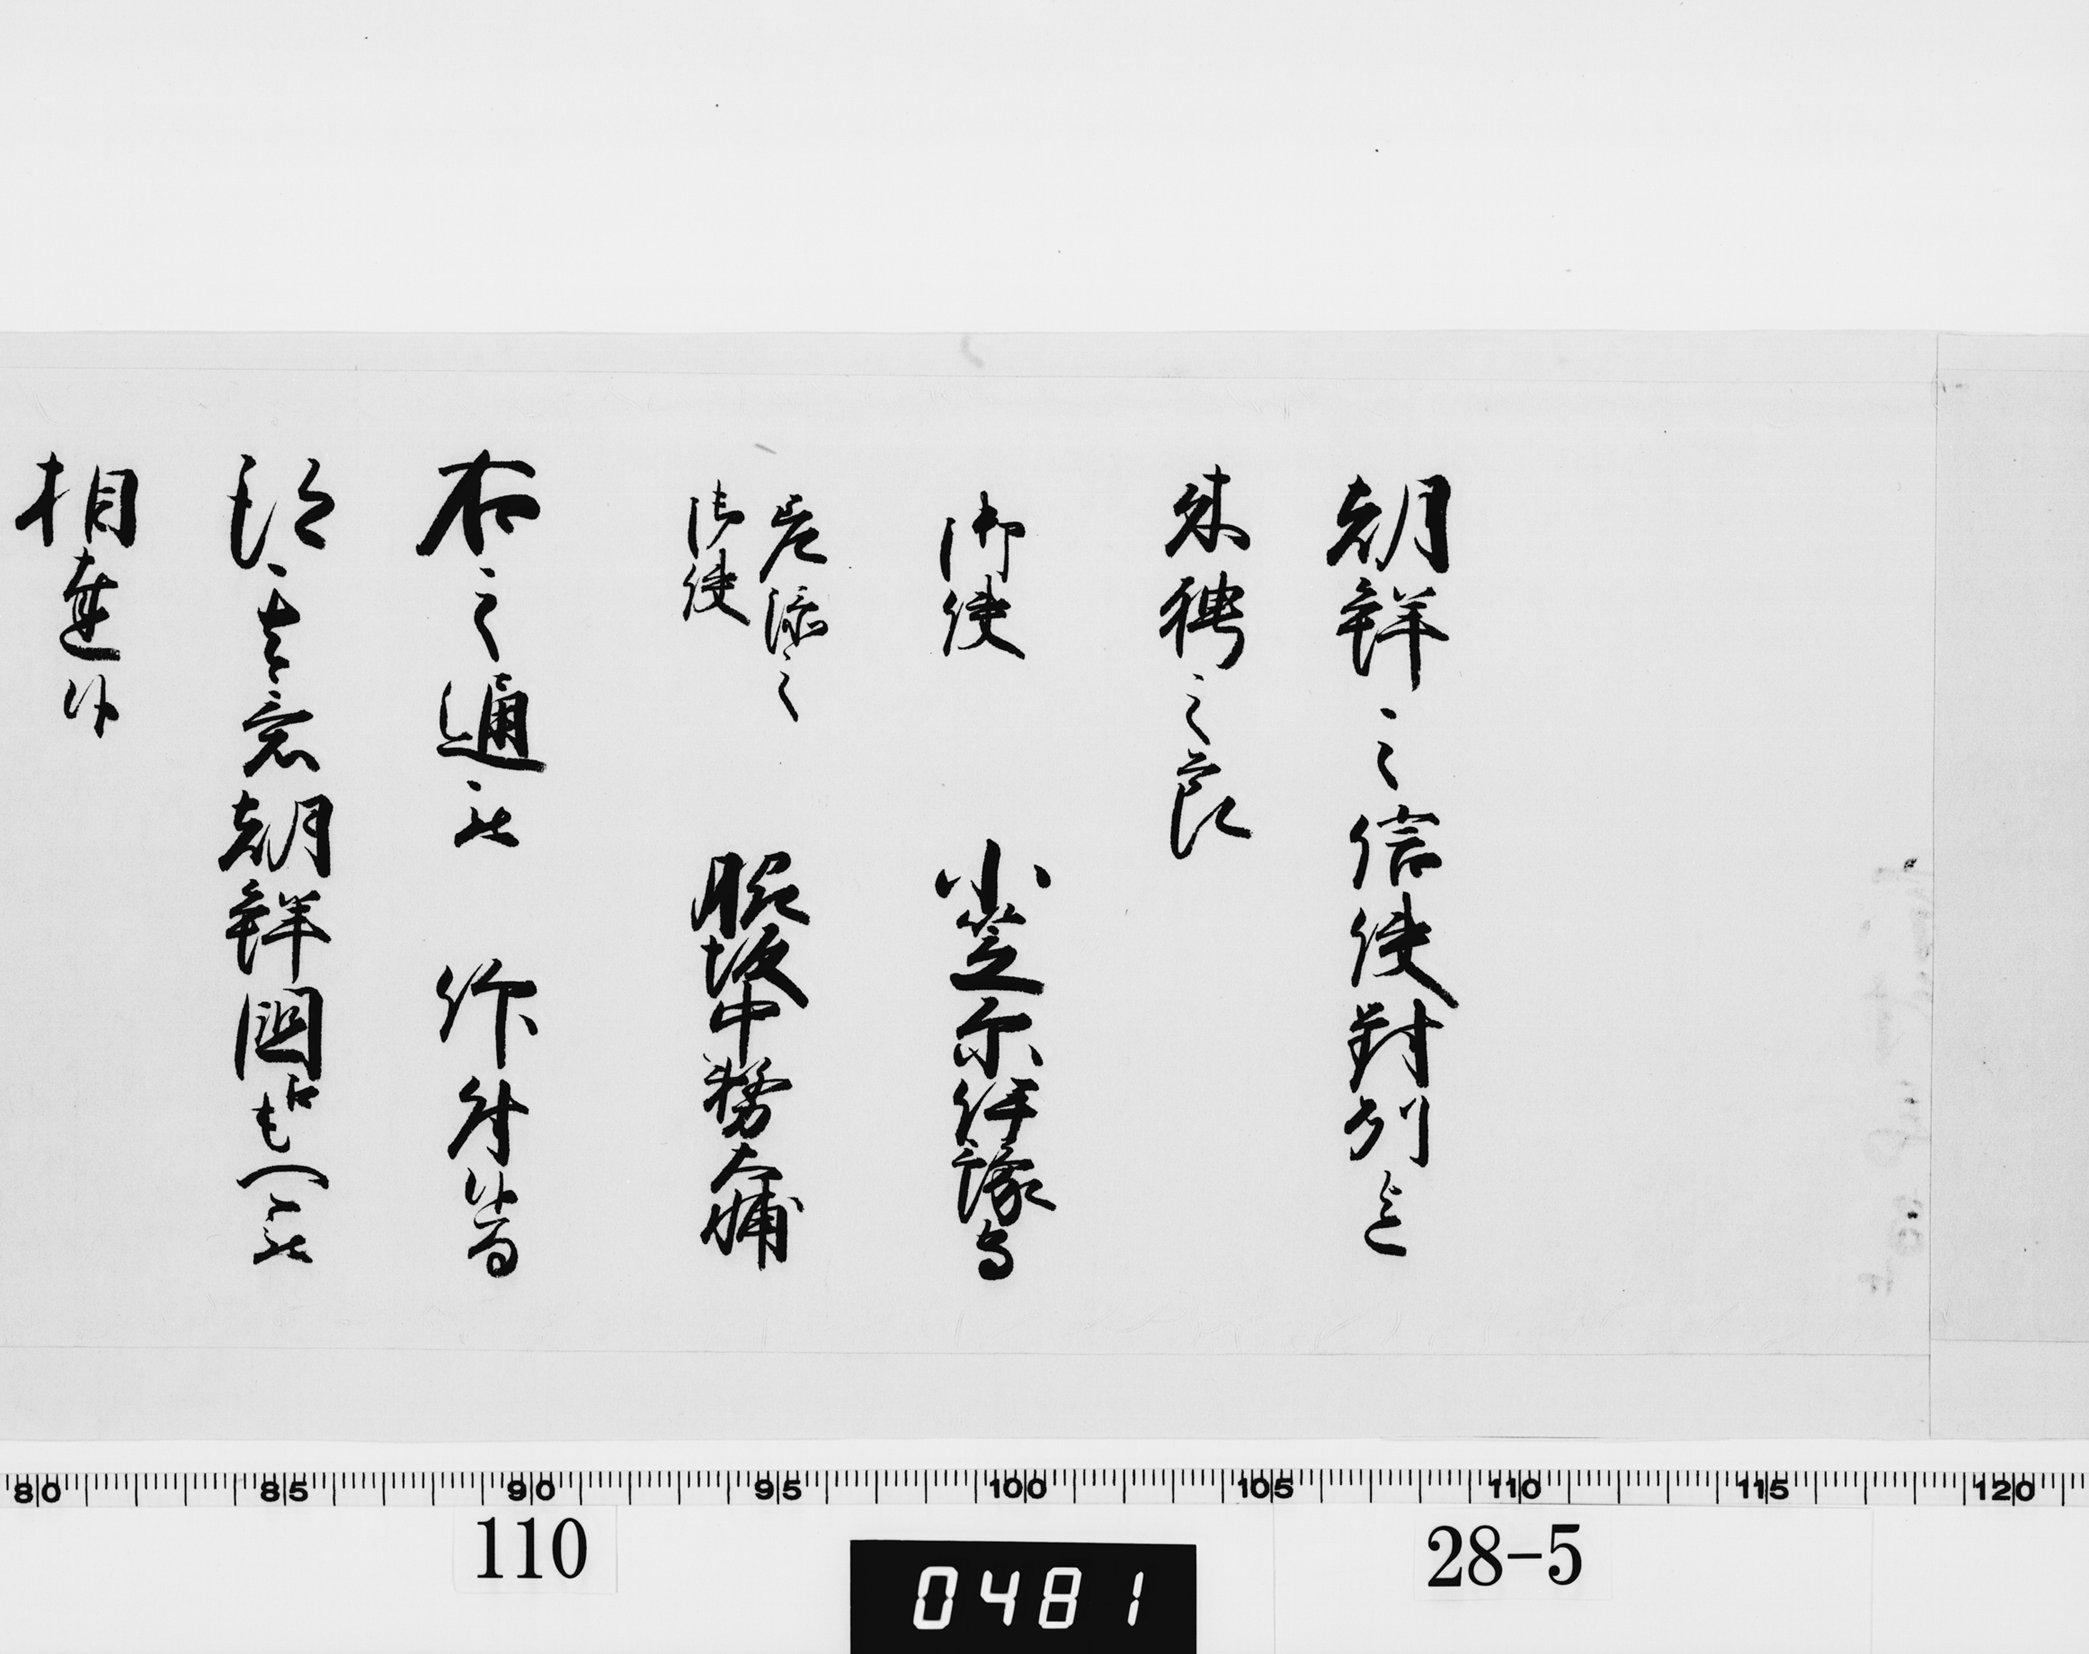 朝鮮之信使對州迄
来聘之節
御使 小笠原伊豫守
差添之
御使 脇坂中務大輔
右之通被 仰付候間
以其意朝鮮国江も可被
相達候
110
0481
28-5
80 85 90 95 100 105 110 115 120